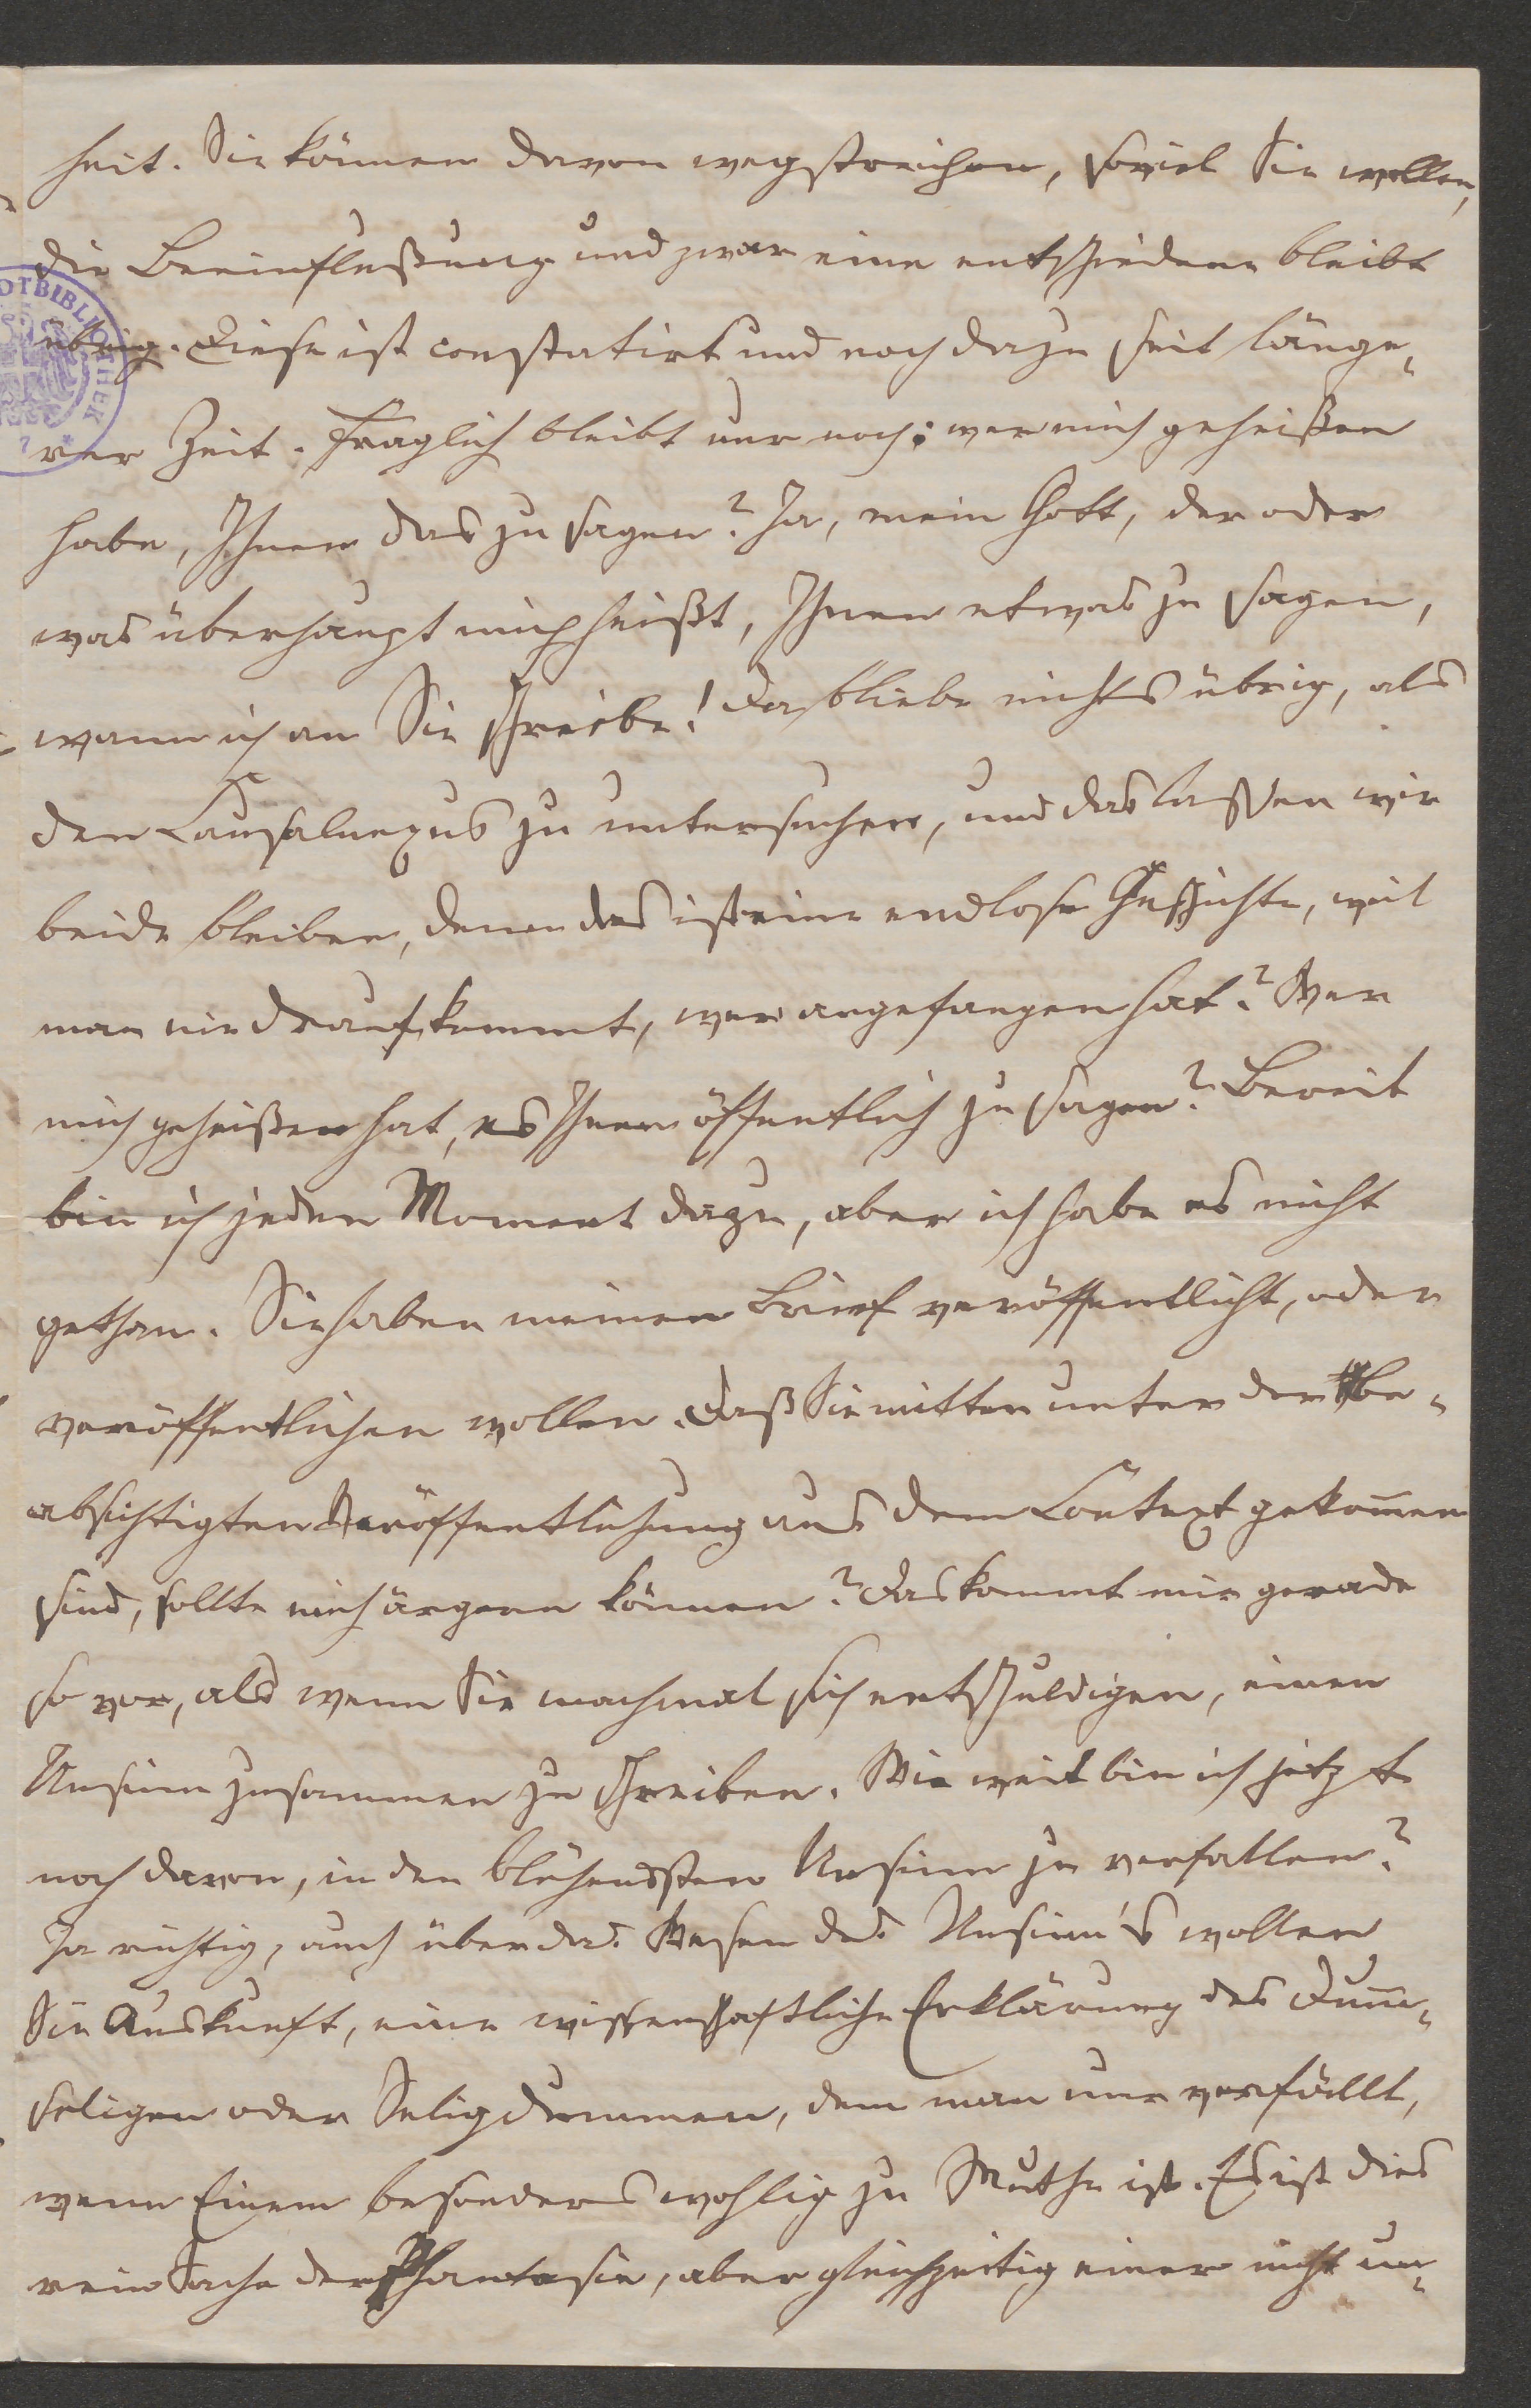 heit. Sie können davon wegstreichen, soviel Sie wollen,
die Beeinflußung und zwar eine entschiedene bleibt
übrig. Diese ist constatirt und noch dazu seit länge-
rer Zeit. Fraglich bleibt nur noch: wer mich geheißen
habe, Ihnen das zu sagen? Ja, mein Gott, der oder
was überhaupt mich heißt, Ihnen etwas zu sagen,
wann ich an Sie schreibe! Da bliebe nichts übrig, als
den Causalnexus zu untersuchen, und das lassen wir
beide bleiben, denn das ist eine endlose Geschichte, weil
man nie drauf kommt, wer angefangen hat? Wer
mich geheißen hat, es Ihnen öffentlich zu sagen? Bereit
bin ich jeden Moment dazu, aber ich habe es nicht
gethan. Sie haben meinen Brief veröffentlicht, oder
veröffentlichen wollen. Daß Sie mitten unter der be-
absichtigten Veröffentlichung aus dem Context gekom̅en
sind, sollte mich ärgern können? Das kommt mir gerade
so vor, als wenn Sie machmal sich entschuldigen, einen
Unsinn zusammen zu schreiben. Wie weit bin ich jetzt
noch davon, in den blühendsten Unsinn zu verfallen?
Ja richtig, auch über das Wesen des Unsinn's wollen
Sie Auskunft, eine wissenschaftliche Erklärung des Dum̅-
seligen oder Seligdummen, dem man nur verfällt,
wenn Einem besonders wohlig zu Muthe ist. Es ist dies
rein Sache der Phantasie, aber gleichzeitig einer nicht un-
DTBIBLIOTHEK